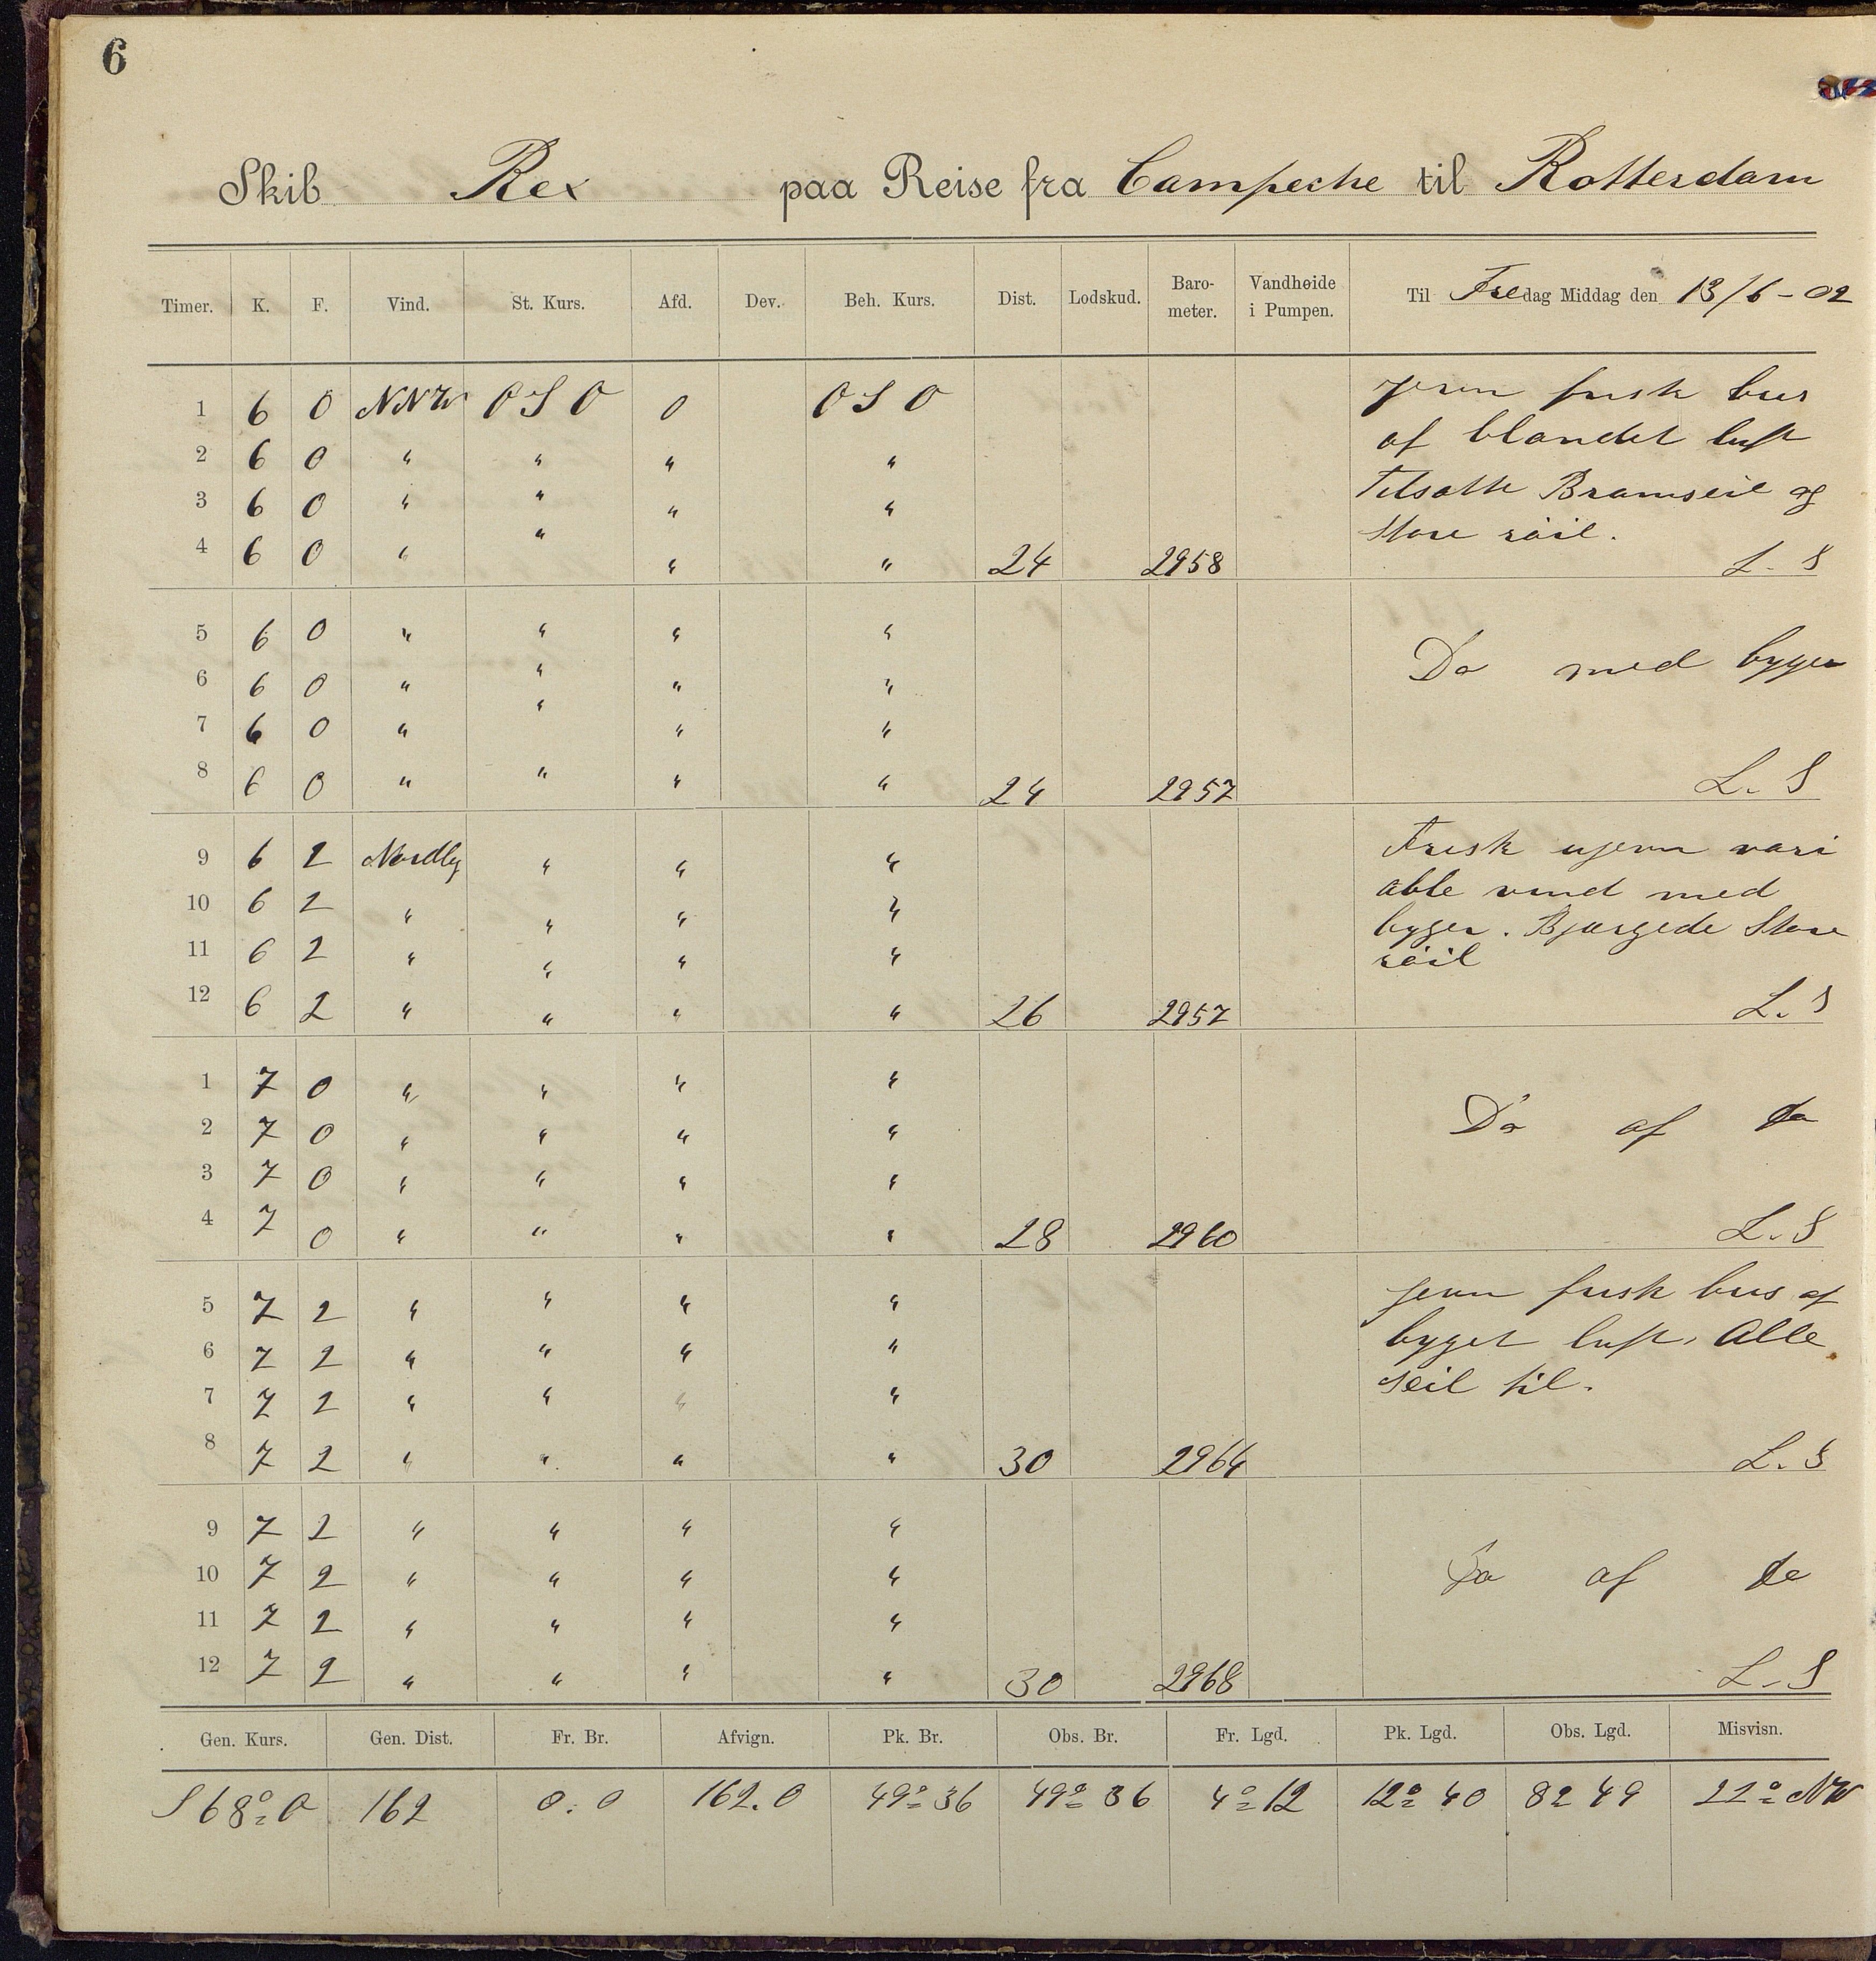 6
Skib Rex paa Reise fra Campeche til Rotterdam
Timer. K. F. Vind. St. Kurs. Afd. Dev. Beh. Kurs. Dist. Lodskud. Baro-meter. Vandhøide i Pumpen. Til Fredag Middag den 13/6-02
1 6 0 NNW OSO 0 OSO Jevn frisk bris
2 6 0 " " " " af blandet luft
3 6 0 " " " " Tilsatte Bramseil og
4 6 0 " " " " 24 2958 Store röil.
L. S
5 6 0 " " " "
6 6 0 " " " " Do med byger
7 6 0 " " " "
8 6 0 " " " " 24 2957 L. S
9 6 2 Nordlig " " " Frisk ujevn vari
10 6 2 " " " " able vind med
11 6 2 " " " " byger. Bjærgede Store
röil
12 6 2 " " " " 26 2957 L. S
1 7 0 " " " "
2 7 0 " " " " Do af do
3 7 0 " " " "
4 7 0 " " " " 28 2960 L. S
5 7 2 " " " " Jevn frisk bris af
6 7 2 " " " " byget luft. Alle
7 7 2 " " " " seil til.
8 7 2 " " " " 30 2964 L. S
9 7 2 " " " "
10 7 2 " " " " Do af do
11 7 2 " " " "
12 7 2 " " " " 30 2968 L. S
Gen. Kurs. Gen. Dist. Fr. Br. Afvign. Pk. Br. Obs. Br. Fr. Lgd. Pk. Lgd. Obs. Lgd. Misvisn.
S 68° O 162 0.0 162.0 49° 36 49° 36 4° 12 12° 40 8° 49 22° NW